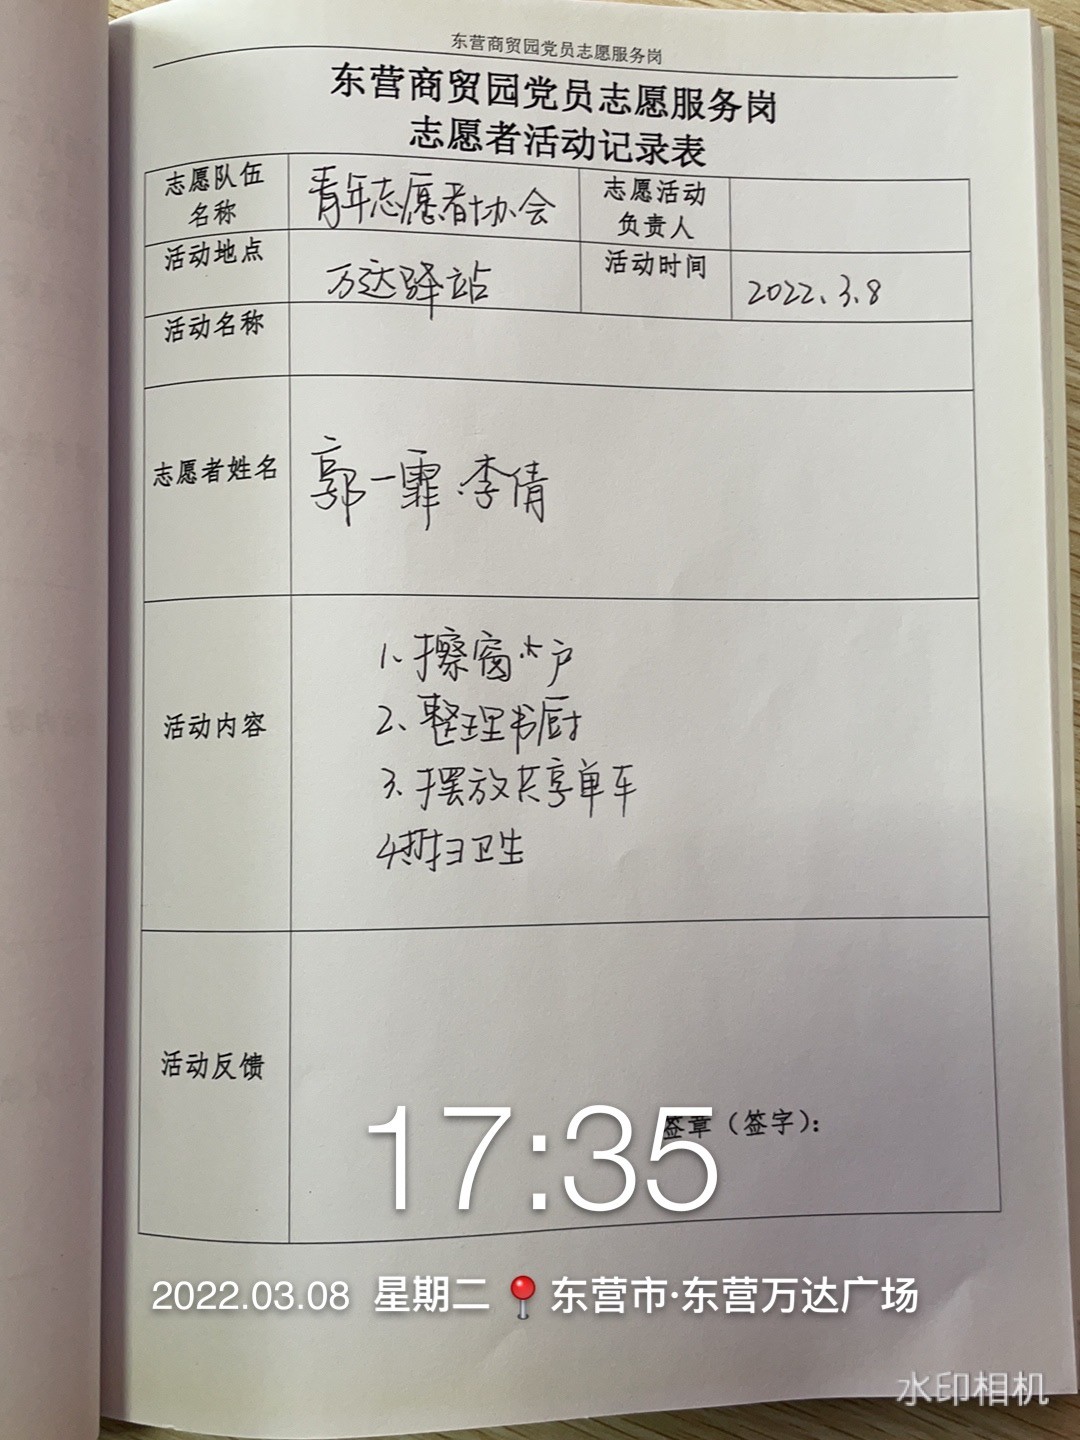 东营商贸园党员志愿服务岗
东营商贸园党员志愿服务岗
志愿者活动记录表
志愿队伍
名称
青年志愿者协会
志愿活动
负责人
活动地点
万达驿站
活动时间
2022.3.8
活动名称
志愿者姓名
郭一霏.李倩
活动内容
1、擦窗户
2、整理书厨
3、摆放共享单车
4打扫卫生
活动反馈
签章（签字）：
17:35
2022.03.08 星期二 东营市·东营万达广场
水印相机